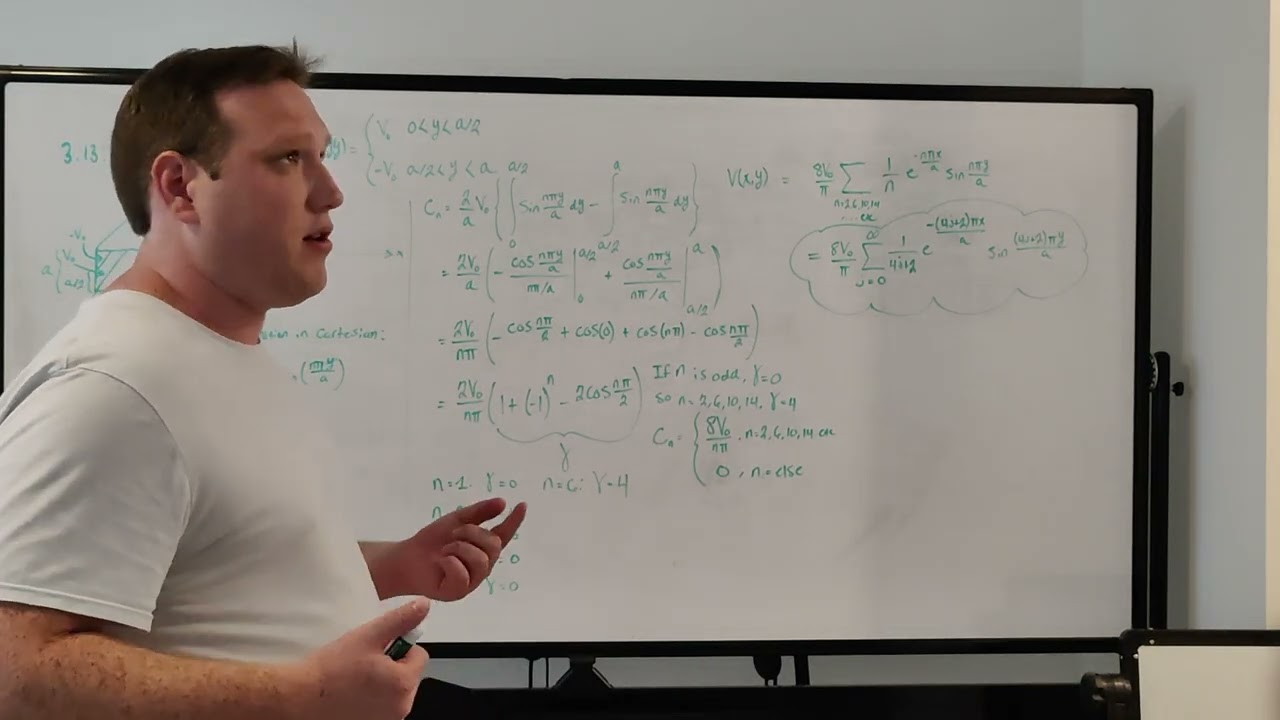 3.13
y) = { V₀ 0<y<a/2
-V₀ a/2<y<a
-V₀
V₀
a { a/2 {
tion in Cartesian:
(nπy/a)
Cₙ = 2/a V₀ { ∫₀^{a/2} sin nπy/a dy - ∫_{a/2}^{a} sin nπy/a dy }
= 2V₀/a ( - cos nπy/a / nπ/a |₀^{a/2} + cos nπy/a / nπ/a |_{a/2}^{a} )
= 2V₀/nπ ( - cos nπ/2 + cos(0) + cos(nπ) - cos nπ/2 )
= 2V₀/nπ ( 1 + (-1)ⁿ - 2cos nπ/2 )
γ
n=1: γ=0 n=6: γ=4
= 0
γ=0
If n is odd, γ=0
so n=2,6,10,14, γ=4
Cₙ = { 8V₀/nπ , n=2,6,10,14 etc
0 , n=else
V(x,y) = 8V₀/π Σ_{n=2,6,10,14 ... etc} 1/n e^{-nπx/a} sin nπy/a
= 8V₀/π Σ_{j=0}^{∞} 1/4j+2 e^{-(4j+2)πx/a} sin (4j+2)πy/a